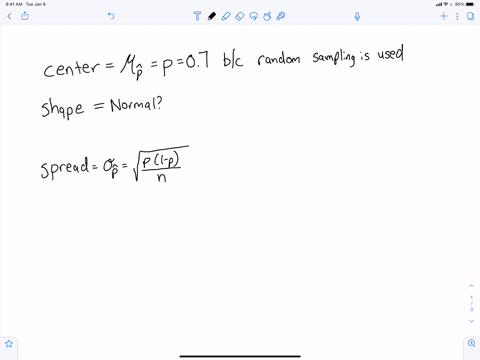 9:41 AM Tue Jan 9
85%
center = μp̂ = p = 0.7 b/c random sampling is used
shape = Normal?
spread = σp̂ = √(p(1-p)/n)
1
/
3